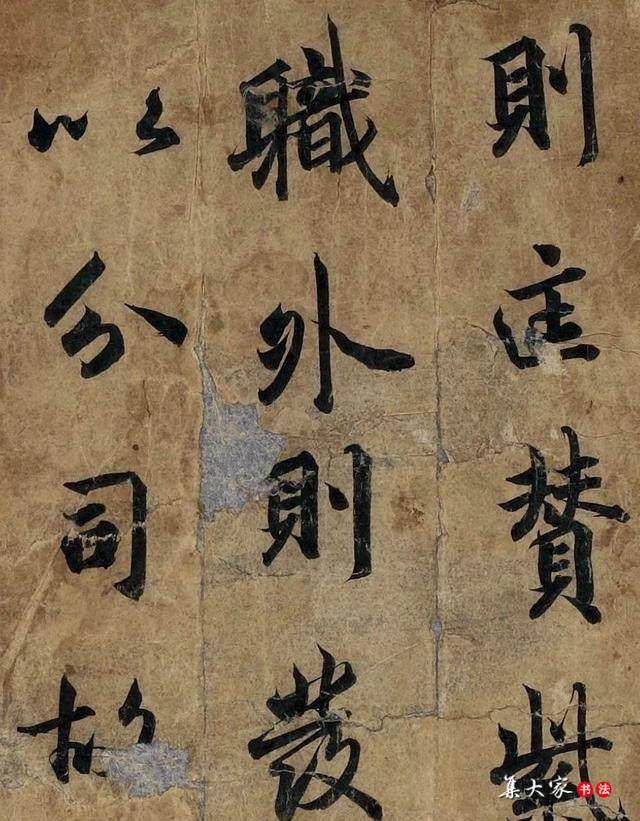 則匡贊
職外則發
以分司故
集大家书法